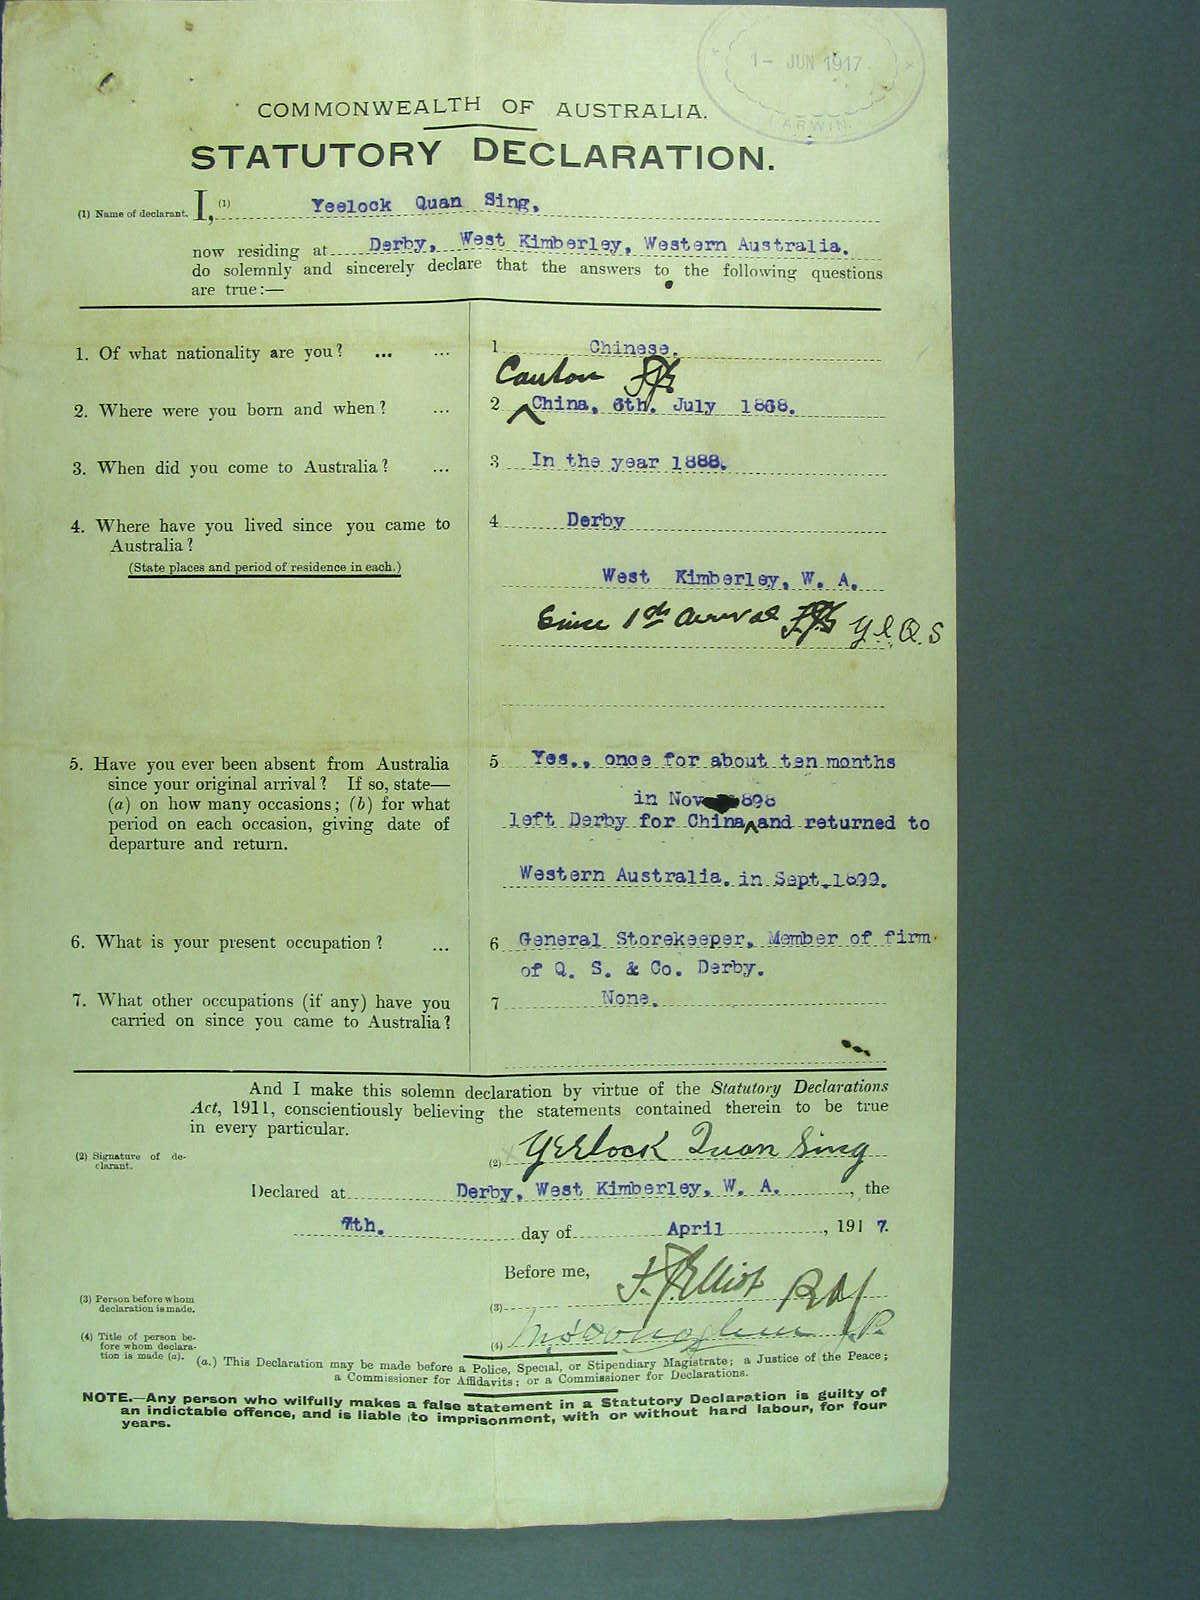 1- JUN 1917
DARWIN.
COMMONWEALTH OF AUSTRALIA.
STATUTORY DECLARATION.
(1) Name of declarant. I, (1) Yeelock Quan Sing,
now residing at Derby, West Kimberley, Western Australia.
do solemnly and sincerely declare that the answers to the following questions
are true:—
1. Of what nationality are you? ... ... 1 Chinese.
Canton FJE
2. Where were you born and when? ... 2 China, 6th. July 1868.
3. When did you come to Australia? ... 3 In the year 1888.
4. Where have you lived since you came to 4 Derby
Australia?
(State places and period of residence in each.)
West Kimberley, W. A.
Since 1st arrival FJE Y.l.Q.S
5. Have you ever been absent from Australia 5 Yes., once for about ten months
since your original arrival? If so, state—
(a) on how many occasions; (b) for what in Nov 1898
period on each occasion, giving date of left Derby for China and returned to
departure and return.
Western Australia. in Sept. 1899.
6. What is your present occupation? ... 6 General Storekeeper, Member of firm
of Q. S. & Co. Derby.
7. What other occupations (if any) have you 7 None.
carried on since you came to Australia?
And I make this solemn declaration by virtue of the Statutory Declarations
Act, 1911, conscientiously believing the statements contained therein to be true
in every particular.
(2) Signature of de-
clarant.
(2) Yeelock Quan Sing
Declared at Derby, West Kimberley, W. A. , the
7th. day of April , 1917.
Before me,
(3) Person before whom
declaration is made.
(3) F. J. Elliot RM
(4) Title of person be-
fore whom declara-
tion is made (a).
(4) J.P.
(a.) This Declaration may be made before a Police, Special, or Stipendiary Magistrate; a Justice of the Peace;
a Commissioner for Affidavits; or a Commissioner for Declarations.
NOTE.—Any person who wilfully makes a false statement in a Statutory Declaration is guilty of
an indictable offence, and is liable to imprisonment, with or without hard labour, for four
years.